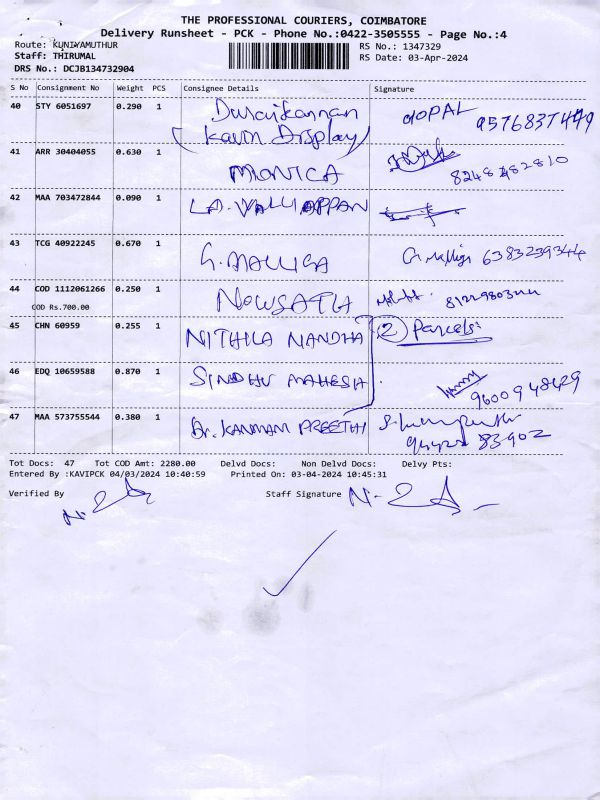 THE PROFESSIONAL COURIERS, COIMBATORE
Delivery Runsheet - PCK - Phone No.:0422-3505555 - Page No.:4
Route: KUNIYAMUTHUR
RS No.: 1347329
Staff: THIRUMAL
RS Date: 03-Apr-2024
DRS No.: DCJB134732904
S No Consignment No Weight PCS Consignee Details Signature
40 STY 6051697 0.290 1 Duraikannan GOPAL
(Kavin Display)
41 ARR 30404055 0.630 1 MONICA
42 MAA 703472844 0.090 1 VALLIAPPAN
43 TCG 40922245 0.670 1 G. MALLIGA 6383239344
44 COD 1112061266 0.250 1 NOWSATH
COD Rs.700.00
45 CHN 60959 0.255 1 NITHILA NANDHA (2) Parcels:
46 EDQ 10659588 0.870 1 SINDHU MAHESH 9600948429
47 MAA 573755544 0.380 1 Dr. KANMANI PREETHI
Tot Docs: 47 Tot COD Amt: 2280.00 Delvd Docs: Non Delvd Docs: Delvy Pts:
Entered By :KAVIPCK 04/03/2024 10:40:59 Printed On: 03-04-2024 10:45:31
Verified By Staff Signature